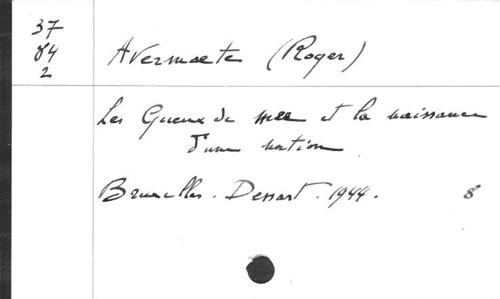 37
84
2
Avermaete (Roger)
Les Gueux de mer et la naissance
d'une nation
Bruxelles. Dessart. 1944. 8